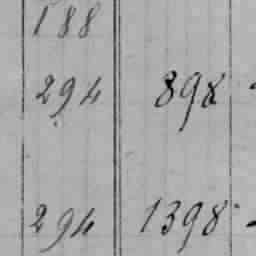 188
294 898
294 1398